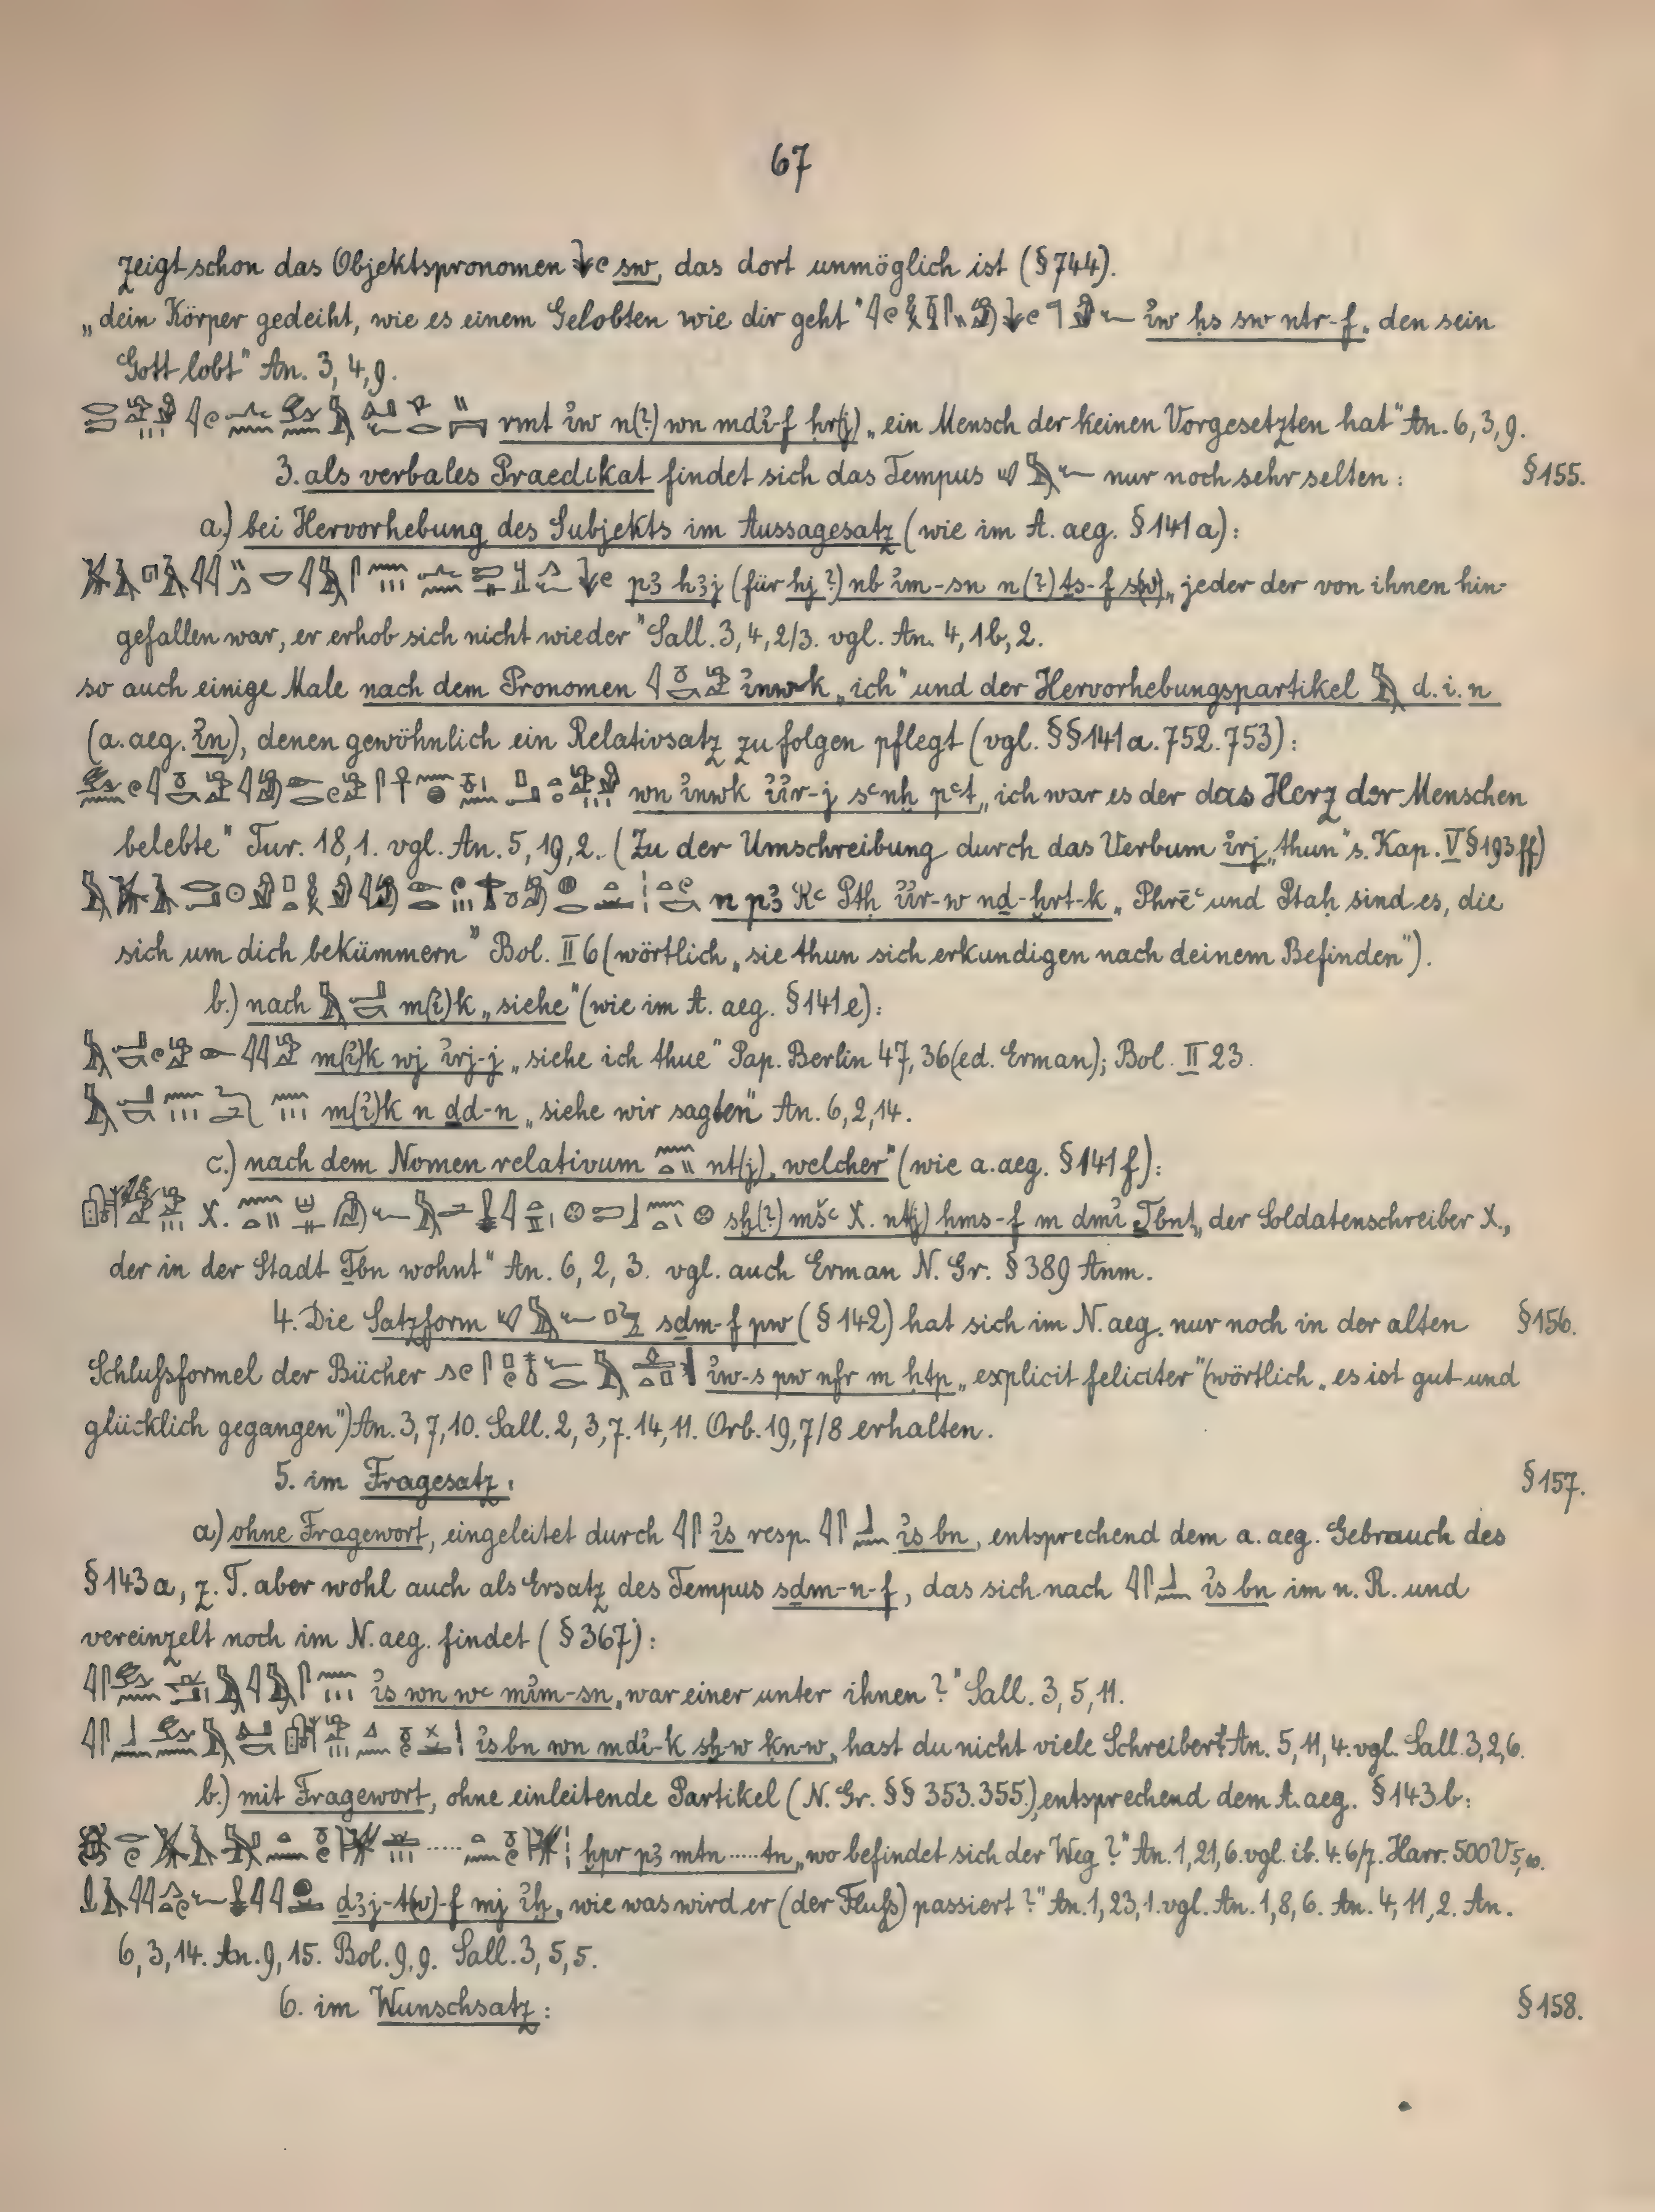 67
zeigt schon das Objektspronomen sw, das dort unmöglich ist (§ 744).
„dein Körper gedeiht, wie es einem Gelobten wie dir geht" ỉw ḥs sw ntr-f „den sein
Gott lobt" An. 3, 4, 9.
rmt ỉw n(?) wn mdỉ-f ḥr(j) „ein Mensch der keinen Vorgesetzten hat" An. 6, 3, 9.
3. als verbales Praedikat findet sich das Tempus nur noch sehr selten: § 155.
a.) bei Hervorhebung des Subjekts im Aussagesatz (wie im A. aeg. § 141 a):
p3 h3j (für hj ?) nb ỉm-sn n(?) ts-f s(w) „jeder der von ihnen hin-
gefallen war, er erhob sich nicht wieder" Sall. 3, 4, 2/3. vgl. An. 4, 1b, 2.
so auch einige Male nach dem Pronomen ỉnwk „ich" und der Hervorhebungspartikel d. i. n
(a. aeg. ỉn), denen gewöhnlich ein Relativsatz zu folgen pflegt (vgl. §§ 141 a. 752. 753):
wn ỉnwk ỉỉr-j sꜥnḫ pꜥt „ich war es der das Herz der Menschen
belebte" Tur. 18, 1. vgl. An. 5, 19, 2. (Zu der Umschreibung durch das Verbum ỉrj „thun" s. Kap. V § 193 ff)
n p3 Rꜥ Ptḥ ỉỉr-w nḏ-ḫrt-k „Phrēꜥ und Ptaḥ sind es, die
sich um dich bekümmern" Bol. II 6 (wörtlich „sie thun sich erkundigen nach deinem Befinden").
b.) nach m(ỉ)k „siehe" (wie im A. aeg. § 141 e):
m(ỉ)k wj ỉrj-j „siehe ich thue" Pap. Berlin 47, 36 (ed. Erman); Bol. II 23.
m(ỉ)k n ḏd-n „siehe wir sagten" An. 6, 2, 14.
c.) nach dem Nomen relativum nt(j) „welcher" (wie a. aeg. § 141 f):
X. sḫ(?) mšꜥ X. nt(j) ḥms-f m dmỉ Ṯbnt „der Soldatenschreiber X.,
der in der Stadt Ṯbn wohnt" An. 6, 2, 3. vgl. auch Erman N. Gr. § 389 Anm.
4. Die Satzform sḏm-f pw (§ 142) hat sich im N. aeg. nur noch in der alten § 156.
Schlußformel der Bücher ỉw-s pw nfr m ḥtp „explicit feliciter" (wörtlich „es ist gut und
glücklich gegangen") An. 3, 7, 10. Sall. 2, 3, 7. 14, 11. Orb. 19, 7/8 erhalten.
5. im Fragesatz: § 157.
a) ohne Fragewort, eingeleitet durch ỉs resp. ỉs bn, entsprechend dem a. aeg. Gebrauch des
§ 143 a, z. T. aber wohl auch als Ersatz des Tempus sḏm-n-f, das sich nach ỉs bn im n. R. und
vereinzelt noch im N. aeg. findet (§ 367):
ỉs wn wꜥ mỉm-sn „war einer unter ihnen ?" Sall. 3, 5, 11.
ỉs bn wn mdỉ-k sḫ-w ḳn-w „hast du nicht viele Schreiber? An. 5, 11, 4. vgl. Sall. 3, 2, 6.
b.) mit Fragewort, ohne einleitende Partikel (N. Gr. §§ 353. 355.) entsprechend dem A. aeg. § 143 b:
ḫpr p3 mtn ..... tn „wo befindet sich der Weg ?" An. 1, 21, 6. vgl. ib. 4. 6/7. Harr. 500 V 5, 10.
ḏ3j-t(w)-f mj ỉḫ „wie was wird er (der Fluß) passiert ?" An. 1, 23, 1. vgl. An. 1, 8, 6. An. 4, 11, 2. An.
6, 3, 14. An. 9, 15. Bol. 9, 9. Sall. 3, 5, 5.
6. im Wunschsatz: § 158.